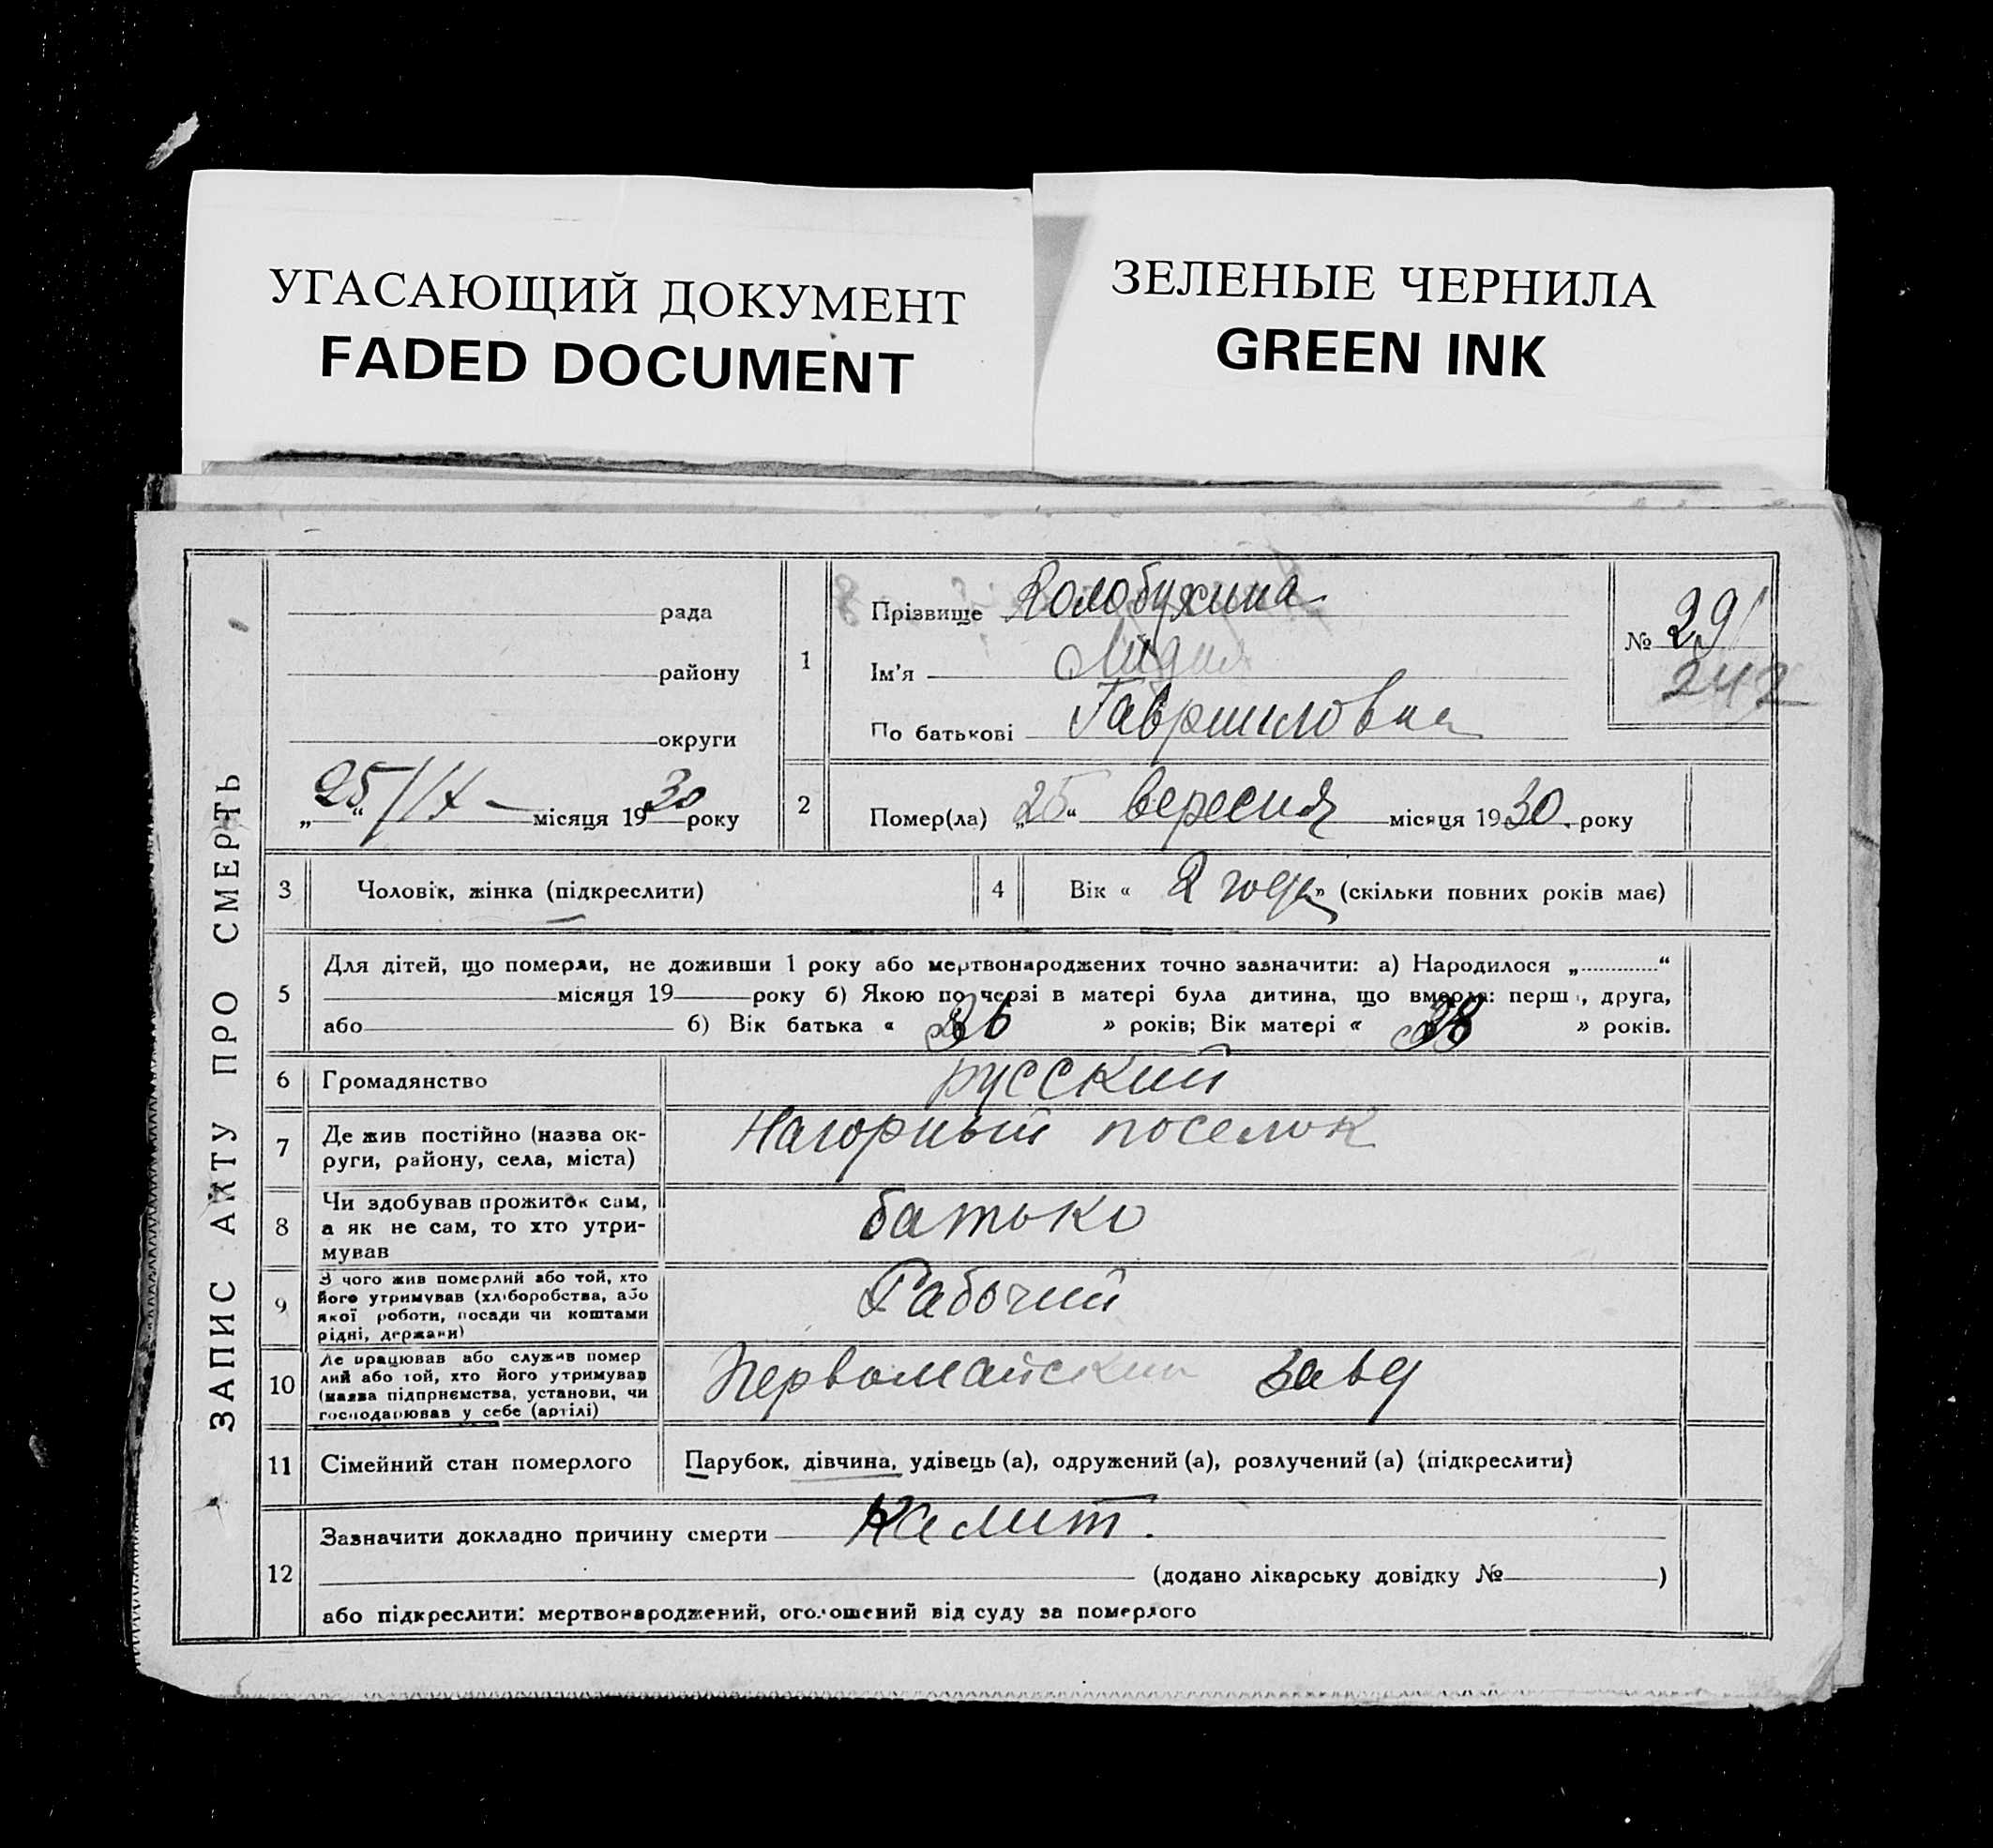 УГАСАЮЩИЙ ДОКУМЕНТ
FADED DOCUMENT
ЗЕЛЕНЫЕ ЧЕРНИЛА
GREEN INK
ЗАПИС АКТУ ПРО СМЕРТЬ
рада
району
округи
„25“/IX місяця 1930 року
1
Прізвище Колобухина
Ім'я Лидия
По батькові Гавриловна
№ 29
242
2
Помер(ла) „25“ вересня місяця 1930 року
3 Чоловік, жінка (підкреслити)
4 Вік « 2 года» (скільки повних років має)
5
Для дітей, що померли, не доживши 1 року або мертвонароджених точно зазначити: а) Народилося „.............“
місяця 19 року б) Якою по черзі в матері була дитина, що вмерла: перша, друга,
або б) Вік батька « 36 » років; Вік матері « 38 » років.
6 Громадянство русский
7 Де жив постійно (назва ок-
руги, району, села, міста)
Нагорный поселок
8
Чи здобував прожиток сам,
а як не сам, то хто утри-
мував
батько
9
З чого жив померлий або той, хто
його утримував (хліборобства, або
якої роботи, посади чи коштами
рідні, держави)
Рабочий
10
Де працював або служив помер
лий або той, хто його утримував
(назва підприємства, установи, чи
господарював у себе (артілі)
Первомайский завд
11 Сімейний стан померлого Парубок, дівчина, удівець (а), одружений (а), розлучений (а) (підкреслити)
12
Зазначити докладно причину смерти
(додано лікарську довідку № )
або підкреслити: мертвонароджений, оголошений від суду за померлого